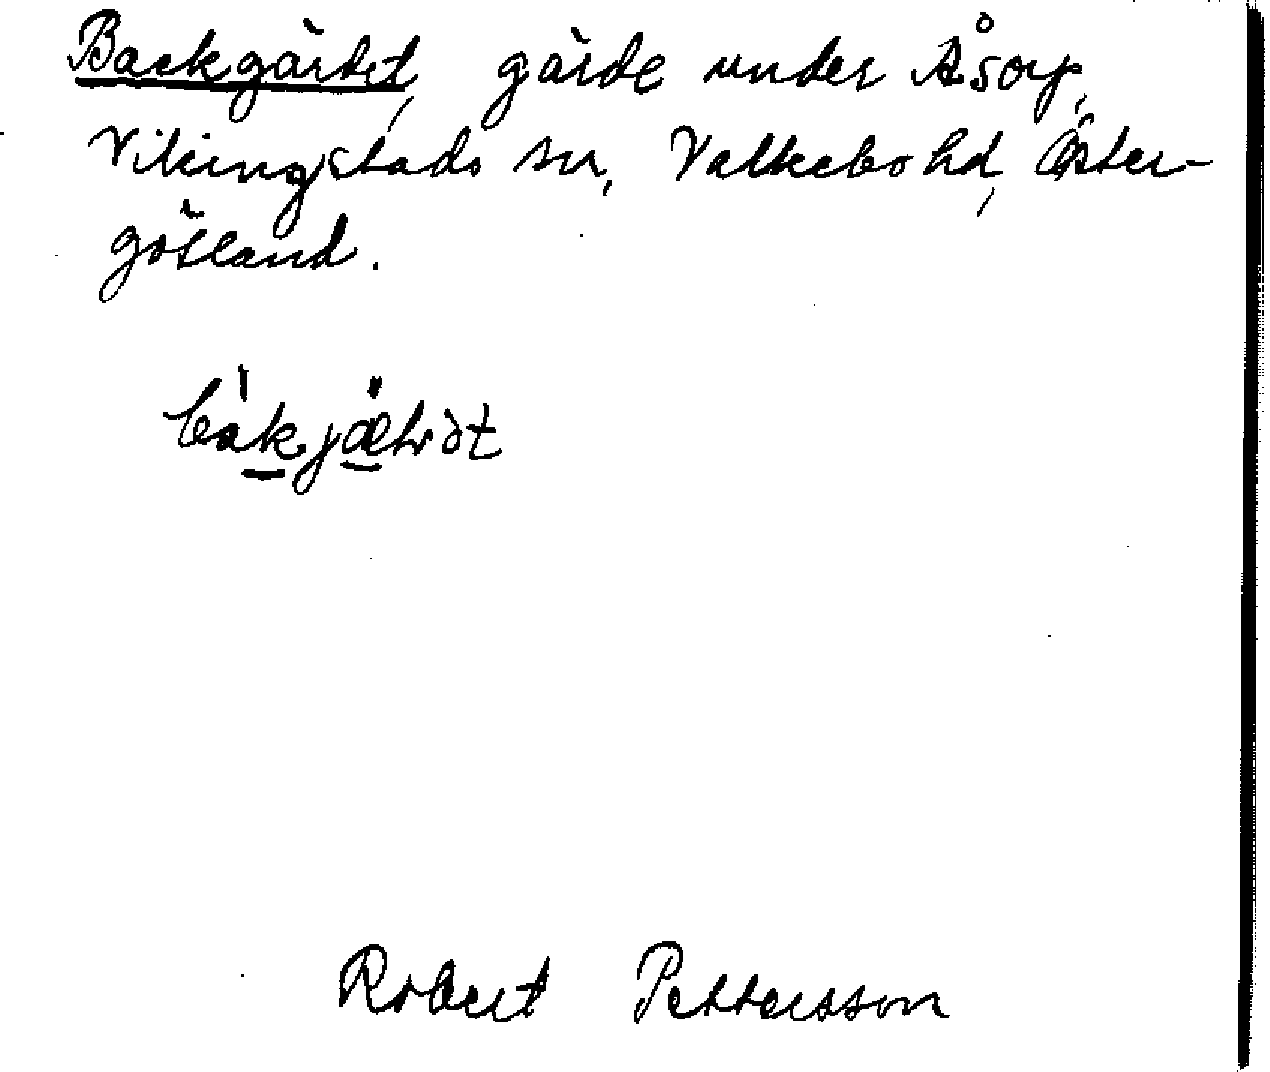 Backgärdet, gärde under Åsorp,
Vikingstads sn, Valkebo hd, Öster-
götland.
Robert Pettersson